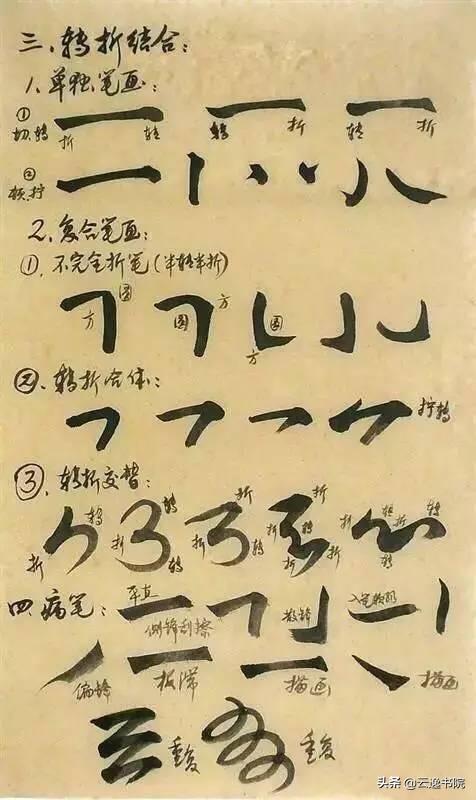 三、转折结合:
1.单独笔画:
① 切、转 折 转 转 折 转 折
② 顿、拧
2、复合笔画:
①、不完全折笔(半转半折)
方 圆 圆 方 圆 方
②、转折合体:
拧转
③、转折交替:
折 转 折 转 转 折 折 转 折 折 转 折 折 折 转 折 转 转
四、病笔:
平直 侧锋刮擦 散锋 入笔顿明
偏锋 板滞 描画 描画
重复 重复
头条 @云逸书院